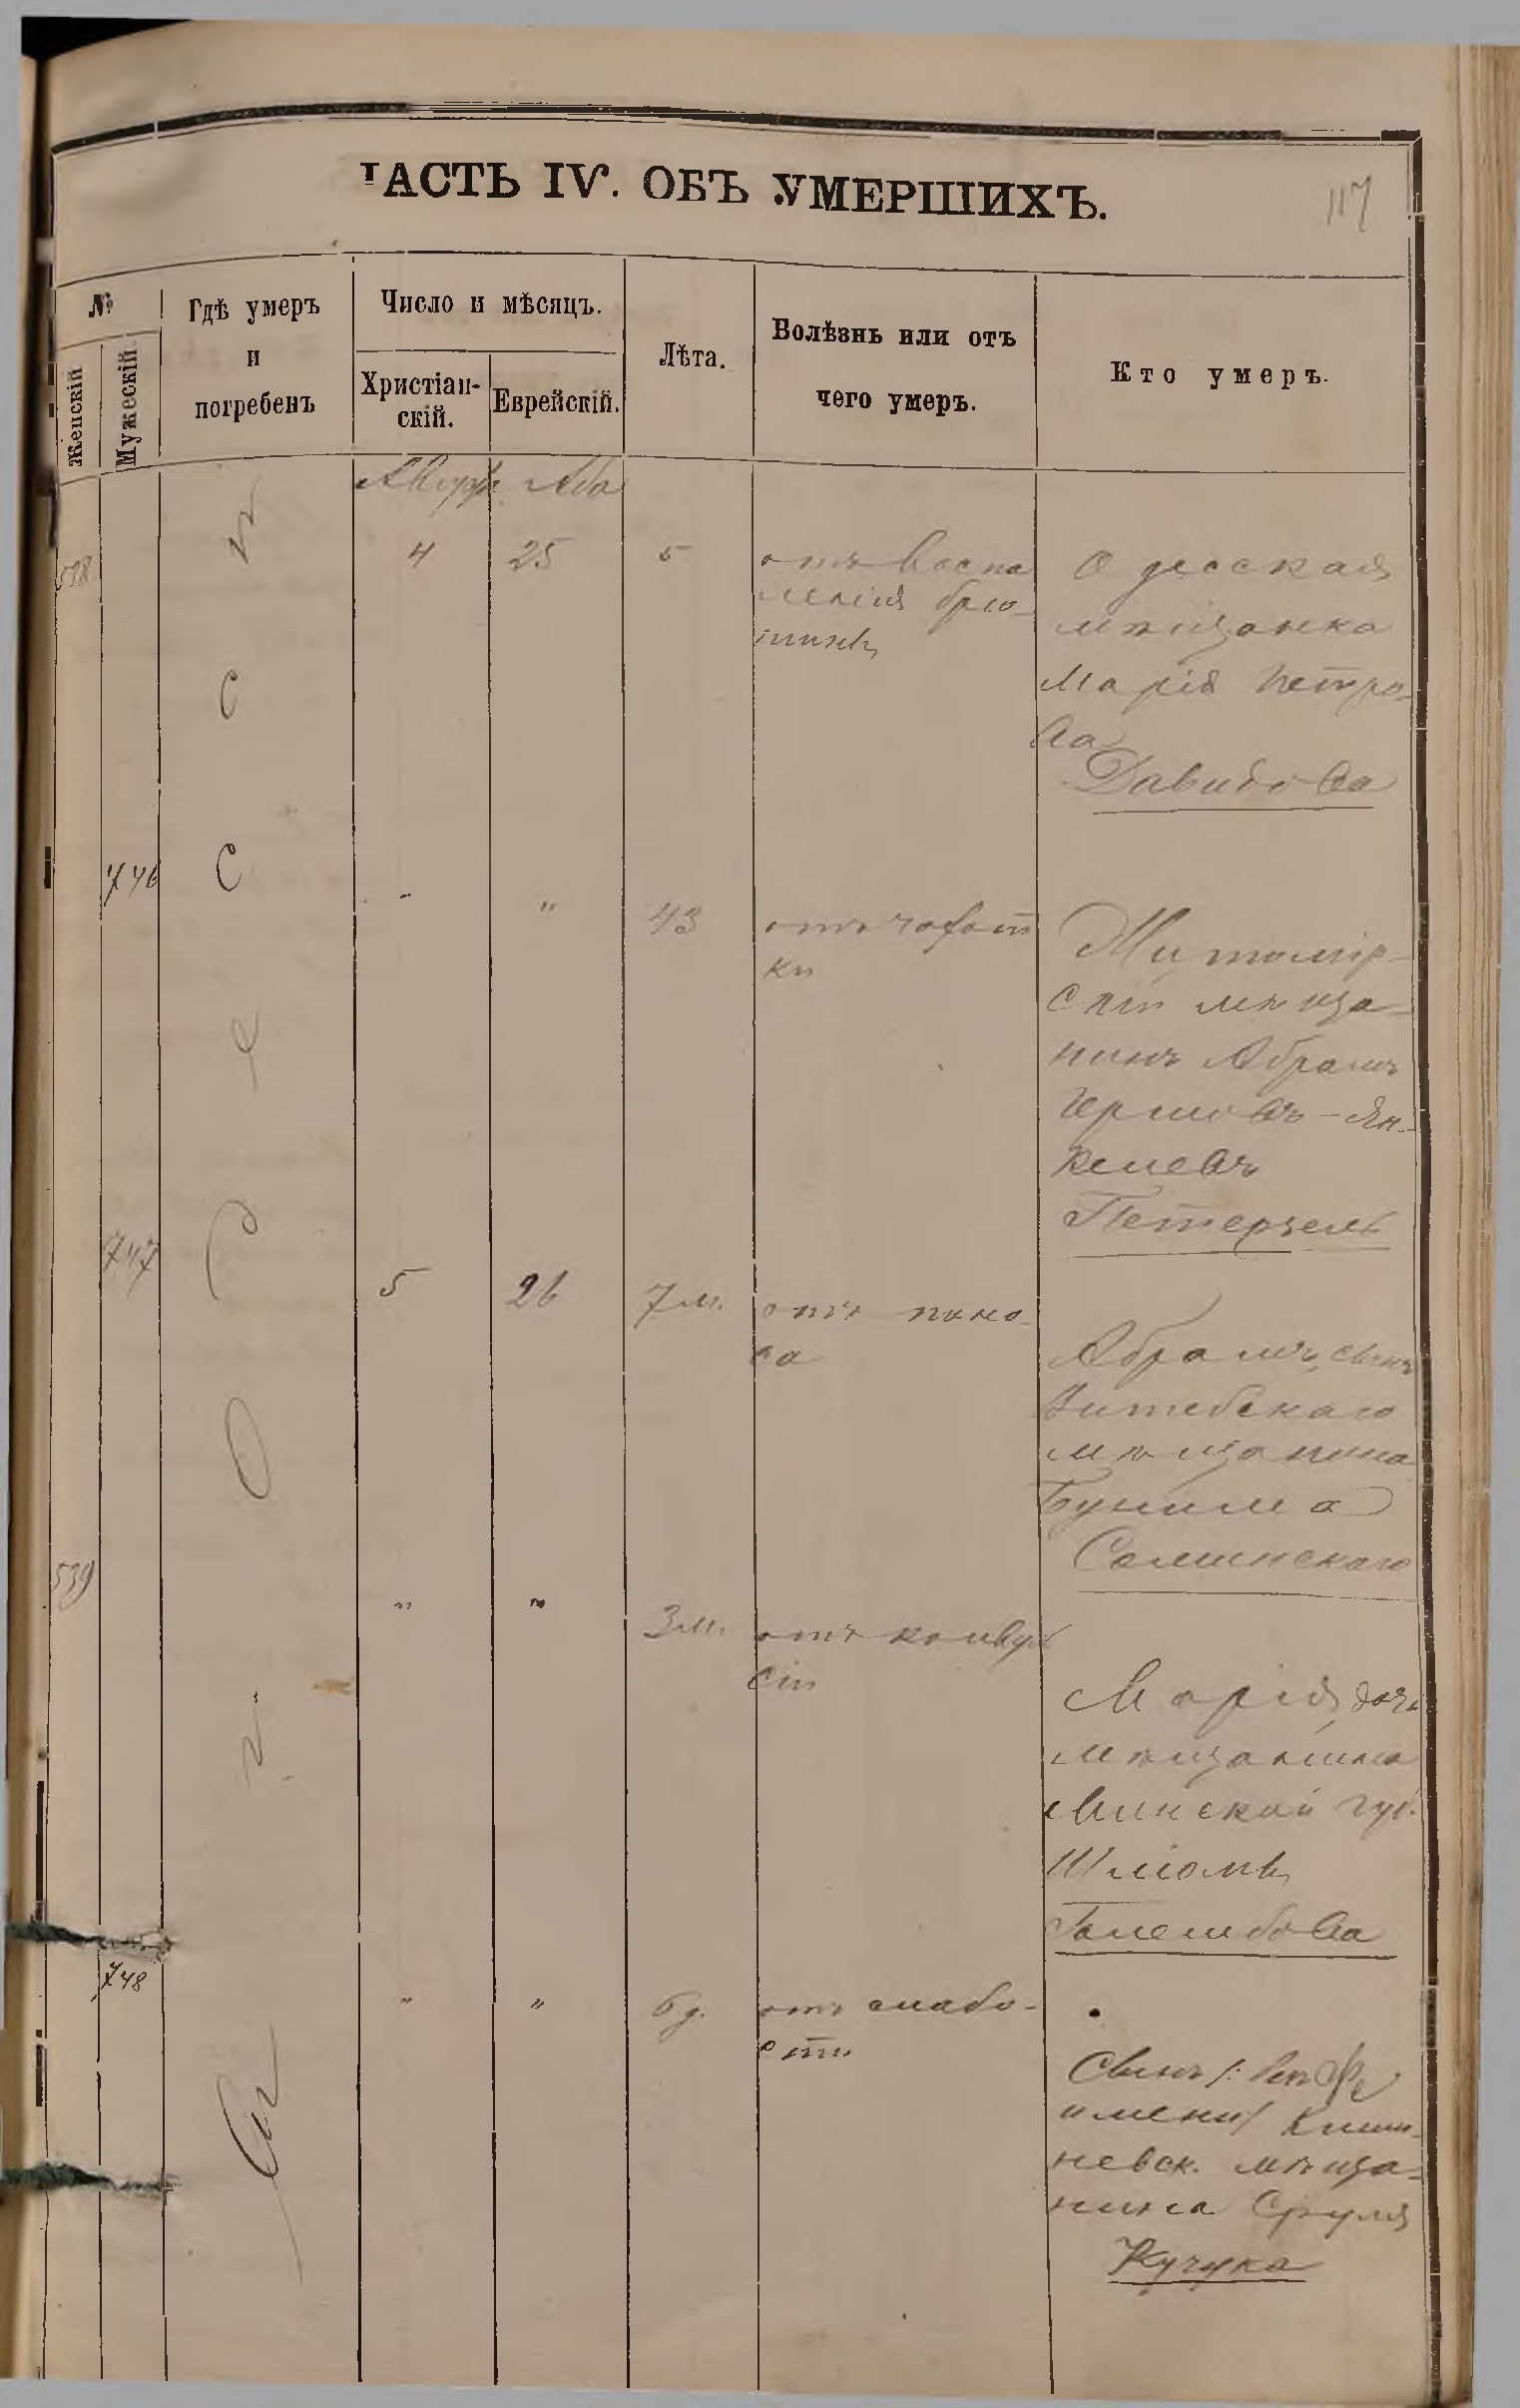 ЧАСТЬ IV. ОБЪ УМЕРШИХЪ.
117
№
Женскій
Мужескій
Гдѣ умеръ
и
погребенъ
Число и мѣсяцъ.
Христіан-
скій.
Еврейскій.
Лѣта.
Болѣзнь или отъ
чего умеръ.
Кто умеръ.
Ава
538
4
25
5
отъ воспа
ленія брю-
шины
Одесская
мѣщанка
Марія Петро-
ва
Давидова
746
-
"
43
отъ чахот
ки
Житомір-
скій мѣща-
нинъ Абрамъ
Гершовъ-Ян-
келевъ
747
5
26
7 м.
отъ поно-
са
Абрамъ, сынъ
Витебскаго
мѣщанина
Бунима
539
"
"
3 м.
отъ конвуль
сій
Марія, дочь
мѣщанина
Минской губ.
Шліомы
748
"
"
6 д.
отъ слабо-
сти
Сынъ /: безъ
имени/ Киши-
невск. мѣща-
нина Сруля
Кучука